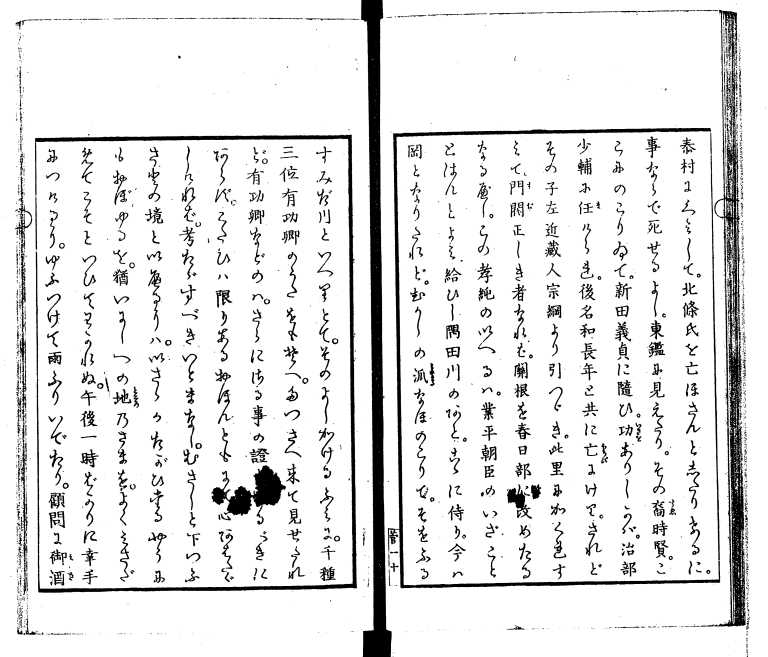 泰村にくみして。北條氏を亡ほさんと
事ならで死せるよし。東鑑に見えたり。その裔時賢。こ
にのこりゐて。新田義貞に隨ひ。功ありしかば。治部
少輔に任けられ。後名和長年と共に亡にけり。されど
その子左近藏人宗綱より引つゞき。此里にかくれす
みて。門閥正しき者なれば。關根を春日部に改めたる
なるべし。この孝純のいへるは。業平朝臣の。いざこと
とはんとよみ給ひし隅田川のあとも。こゝに侍り。今は
岡となりたれど。むかしの派なほのこりて。そをふる
すみだ川といへりとて。そのよしかけるふみに。千種
三位有功卿のうたをもそへ。もて來て見せたれ
ど。有功卿などのは。さらにさる事の證
あらず。こたびは限りあるおほんともにて。心あわたゞ
しければ。考たゞすべきいとまなし。むさしと下つふ
さとの境といふなるは。いさゝかたがひたるやうに
もおぼゆるを。猶いにしへの地のさまを。よくくはしさだ
めてこそといひてわかれぬ。午後一時ばかりに幸手
につけり。ゆふつけて雨ふりいでたり。顧問に御酒